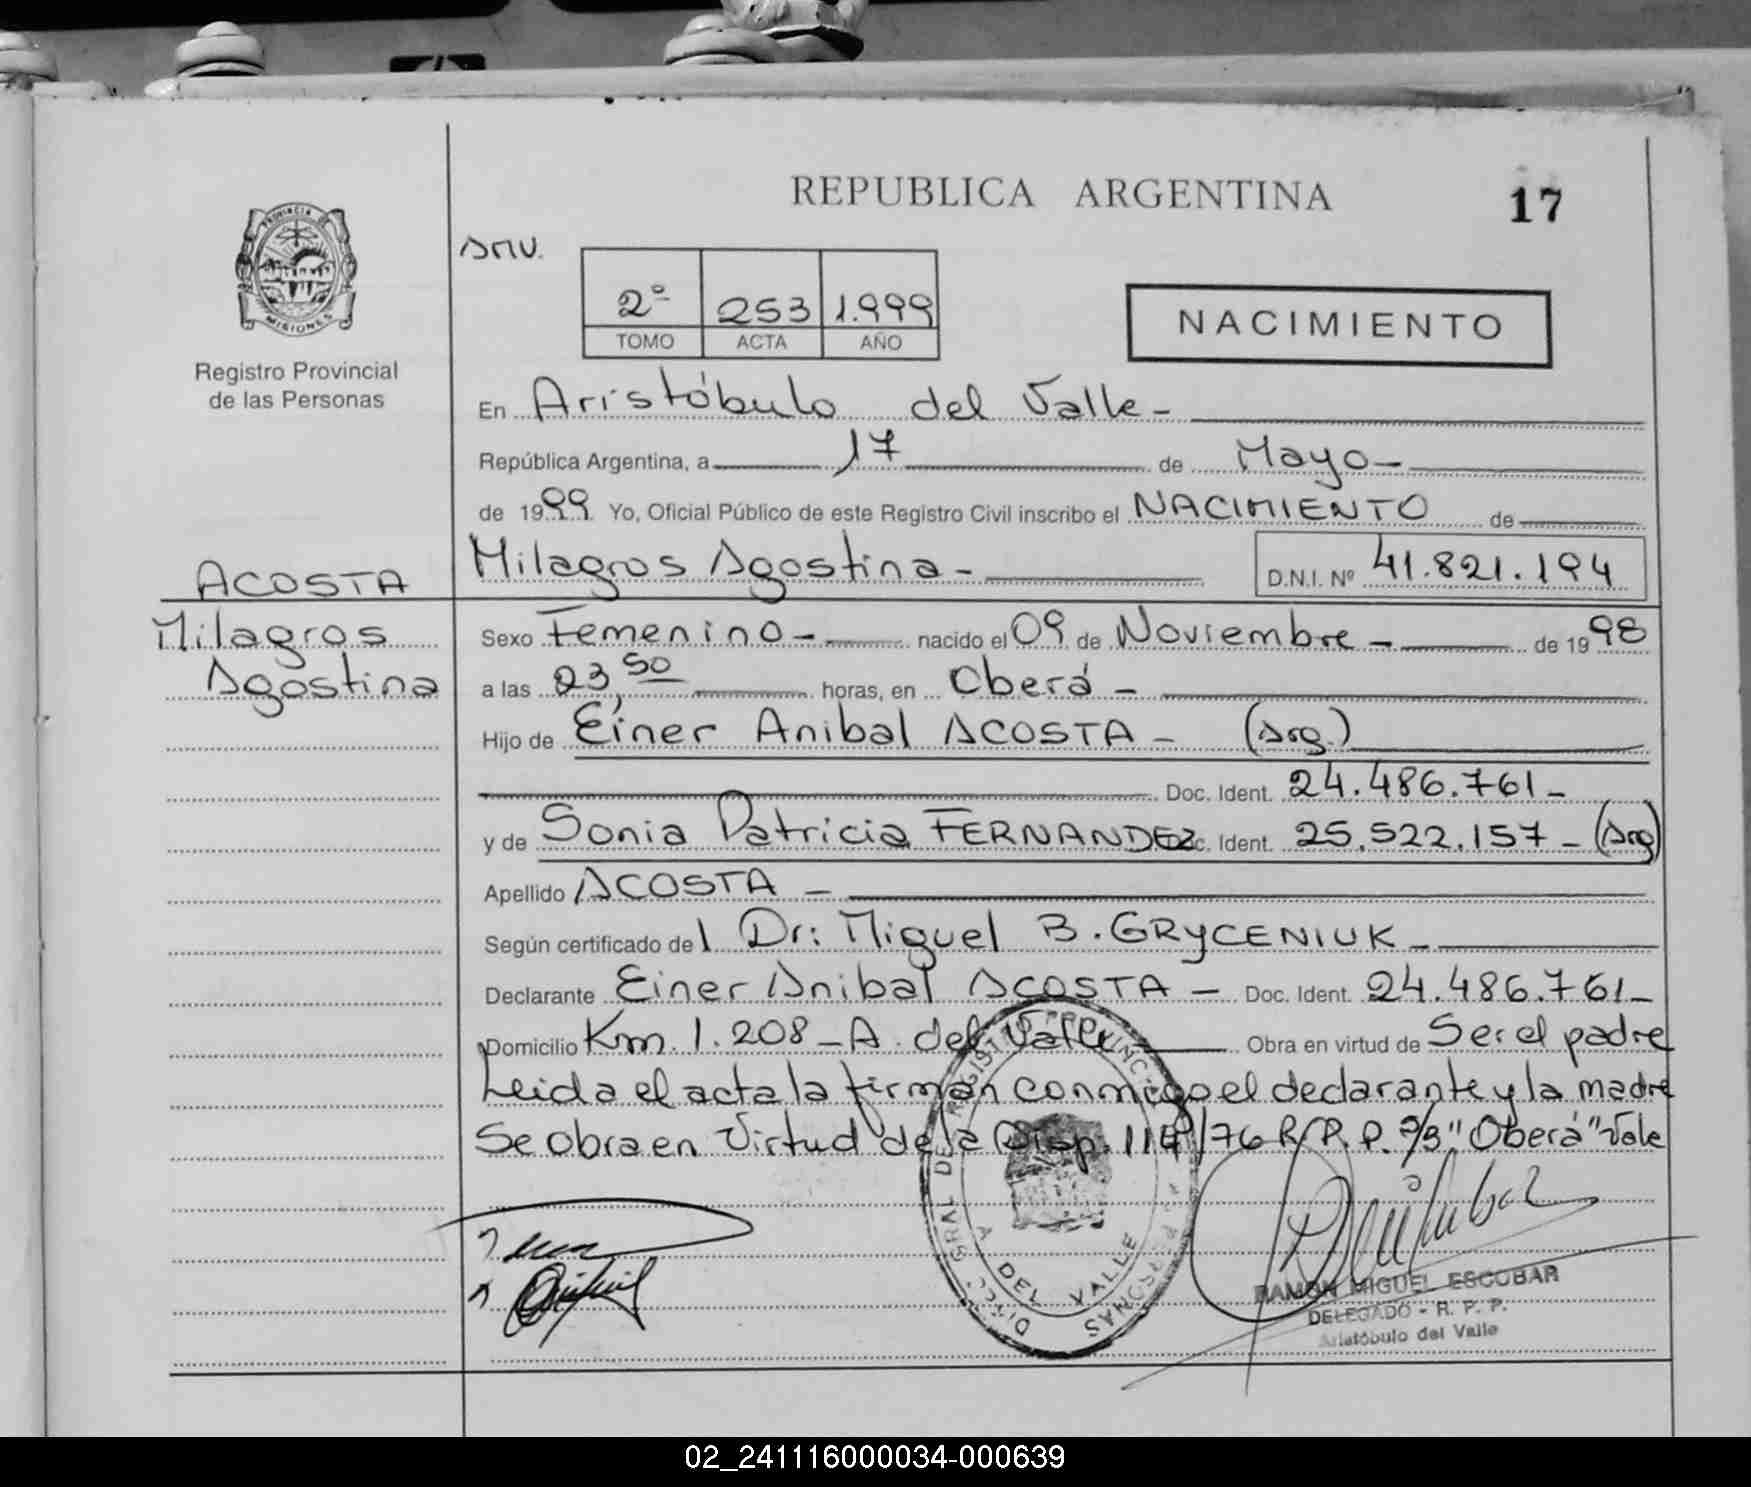 REPUBLICA ARGENTINA
17
PROVINCIA DE
MISIONES
Registro Provincial
de las Personas
2º 253 1.999
TOMO ACTA AÑO
NACIMIENTO
En Aristóbulo del Valle-
República Argentina, a 17 de Mayo-
de 1999 Yo, Oficial Público de este Registro Civil inscribo el NACIMIENTO de
Milagros Agostina- D.N.I. Nº 41.821.194
ACOSTA
Milagros
Agostina
Sexo Femenino- nacido el 09 de Noviembre- de 1998
a las 23,50 horas, en Oberá-
Hijo de Einer Anibal ACOSTA- (Arg.)
Doc. Ident. 24.486.761-
y de Sonia Patricia FERNANDEZ Doc. Ident. 25.522.157- (Arg)
Apellido ACOSTA-
Según certificado del Dr: Miguel B. GRYCENIUK-
Declarante Einer Anibal ACOSTA- Doc. Ident. 24.486.761-
Domicilio Km. 1.208-A. del Valle Obra en virtud de Ser el padre
Leida el acta la firman conmigo el declarante y la madre
Se obra en virtud de la Disp. /76 R.P.P. "Oberá" Vale
A DEL VALLE
RAMON MIGUEL ESCOBAR
DELEGADO - R. P. P.
Aristóbulo del Valle
02_241116000034-000639